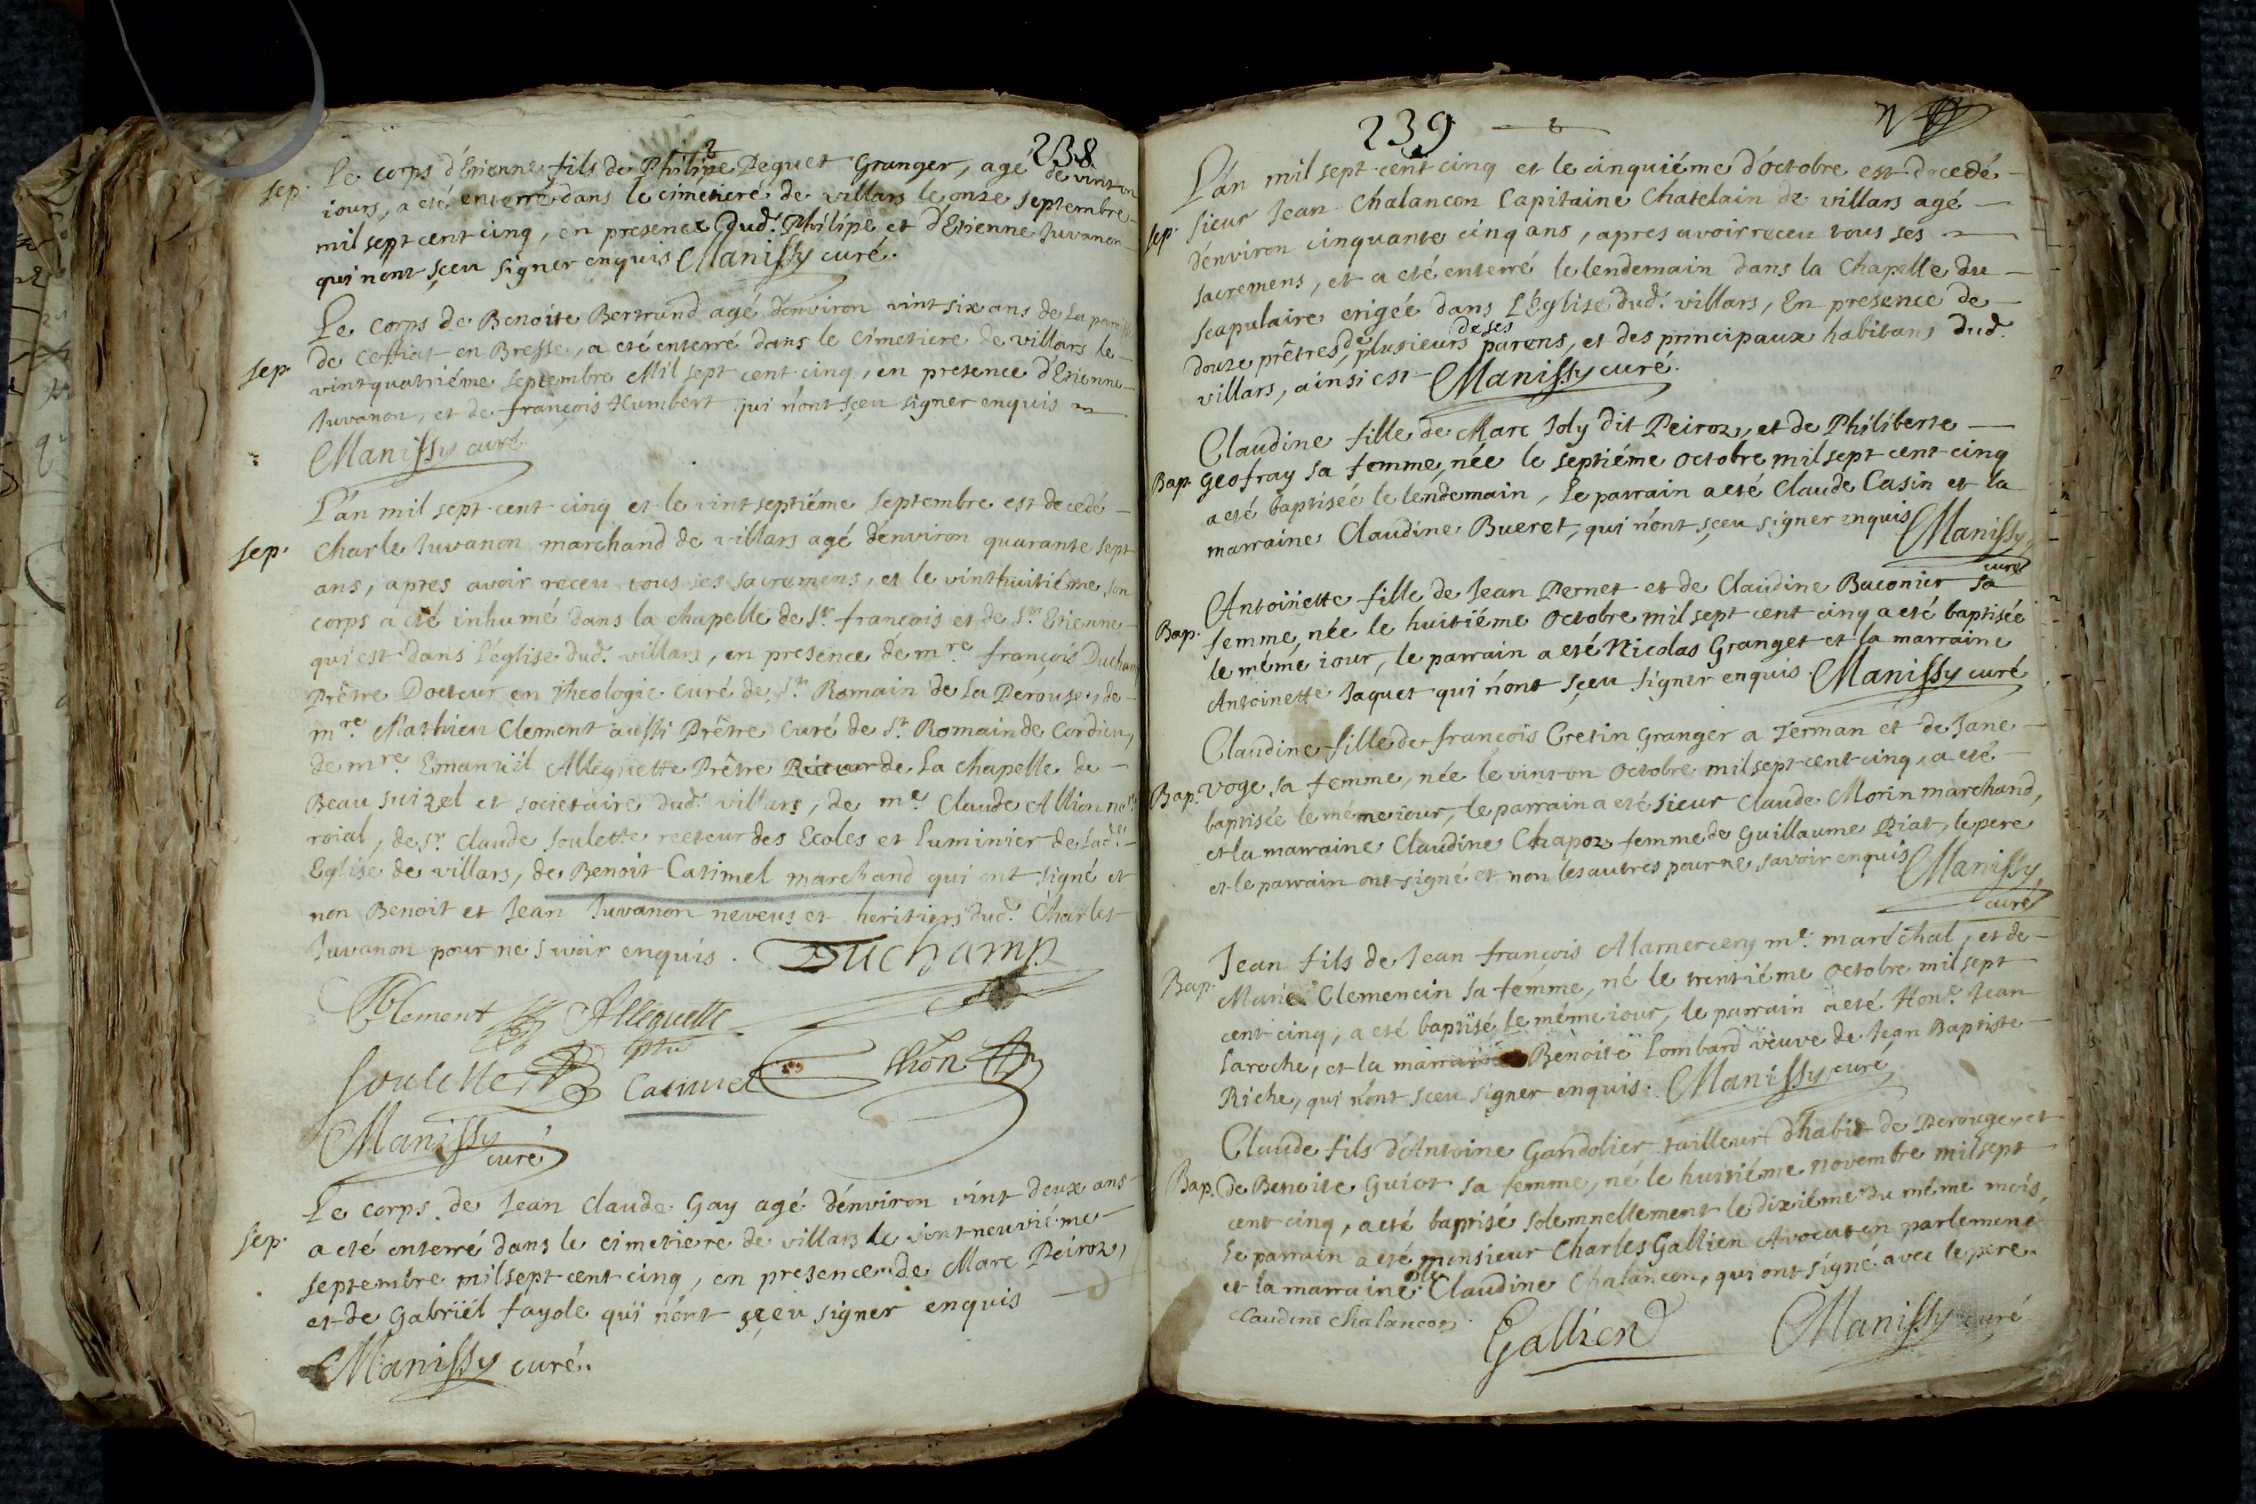 238
sep. Le corps d'Etienne fils de Philipe Peguet Granger, agé de vint un
iours, a eté enterré dans le cimetieré de villars le onze septembre
mil sept cent cinq, en presence dud. Philipe et d'Etienne Iuvanon
qui n'ont sçeu signer enquis Manissy curé.
Le corps de Benoite Bertrand agé d'environ vint six ans de La
sep. de Ceffiat en Bresse, a eté enterré dans le Cimetiere de villars le
vint quatriéme septembre Mil sept cent cinq, en presence d'Etienne
Iuvanon, et de françois Humbert qui n'ont sçeu signer enquis
Manissy curé
L'an mil sept cent cinq et le vint septiéme septembre est decedé
sep. Charle Iuvanon marchand de villars agé d'environ quarante sept
ans, apres avoir receu tous ses sacremens, et le vinthuitiéme son
corps a eté inhumé dans la chapelle de St. françois et de St. Etienne
qui est dans l'église dud. villars, en presence de mre. françois Duchamp
Prêtre Docteur en Theologie curé de St. Romain de La Perouse, de
mre. Mathieu Clement aussi Prêtre Curé de St. Romain de Cordieu,
de mre. Emanuël Alleguette Prêtre Recteur de La chapelle de
Beau suizel et societaire dud. villars, de me. Claude Allion
roial, de Sr. Claude Soulette recteur des Ecoles et Luminier de Lad.
Eglise de villars, de Benoit Catimel marchand qui ont signé et
non Benoit et Iean Iuvanon neveus et heritiers dud. Charles
Iuvanon pour ne savoir enquis. Duchamp
Clement Alleguette
ptre
Soulette Catimel
Manissy
curé
Le corps de Iean Claude Gay agé d'environ vint deux ans
sep. a eté enterré dans le cimetiere de villars le vint neuviéme
septembre mil sept cent cinq, en presence de Marc Peiroz,
et de Gabriël fayole qui n'ont sçeu signer enquis
Manissy curé.
239
L'an mil sept cent cinq et le cinquiéme d'octobre est decedé
sep. sieur Iean Chalancon Capitaine Chatelain de villars agé
d'environ cinquante cinq ans, apres avoir receu tous ses
sacremens, et a eté enterré le lendemain dans la Chapelle du
scapulaire erigée dans l'Eglise dud. villars, En presence de
de ses
douze prêtres, de plusieurs parens, et des principaux habitans dud.
villars, ainsi est Manissy curé.
Claudine fille de Marc Ioly dit Peiroz, et de Philiberte
Bap. Geofray sa femme, née le septiéme octobre mil sept cent cinq
a eté baptisée le lendemain, Le parrain a eté Claude Casin et la
marraine Claudine Bueret, qui n'ont sçeu signer enquis Manissy
curé
Antoinette fille de Iean Pernet et de Claudine Baconier sa
Bap. femme, née le huitiéme Octobre mil sept cent cinq a eté baptisée
le même iour, le parrain a eté Nicolas Granget et la marraine
Antoinette Iaquet qui n'ont sçeu signer enquis. Manissy curé
Claudine fille de françois Cretin Granger a Zerman et de Iane
Bap. voge sa femme, née le vint un Octobre mil sept cent cinq, a eté
baptisée le même iour, le parrain a eté sieur Claude Morin marchand,
et la marraine Claudine Chapoz femme de Guillaume Riat, le pere
et le parrain ont signé et non les autres pour ne savoir enquis Manissy
curé
Jean fils de Iean françois Mamercery me. maréchal, et de
Bap. Marie Clemencin sa femme, né le trentiéme Octobre mil sept
cent cinq, a eté baptisé le même iour, le parrain a eté Hone. Iean
Laroche, et la marraine Benoite Lombard veuve de Iean Baptiste
Riche, qui n'ont sceu signer enquis. Manissy curé
Claude fils d'Antoine Gandolier tailleur d'habit de Perouge, et
Bap. de Benoite Guiot sa femme, né le huitiéme novembre mil sept
cent cinq, a eté baptisé solemnellement le dixiéme du même mois,
Le parrain a eté monsieur Charles Gallien Avocat en parlement
et la marraine Dlle Claudine Chalancon, qui ont signé avec le pere.
Claudine chalancon Gallien Manissy curé